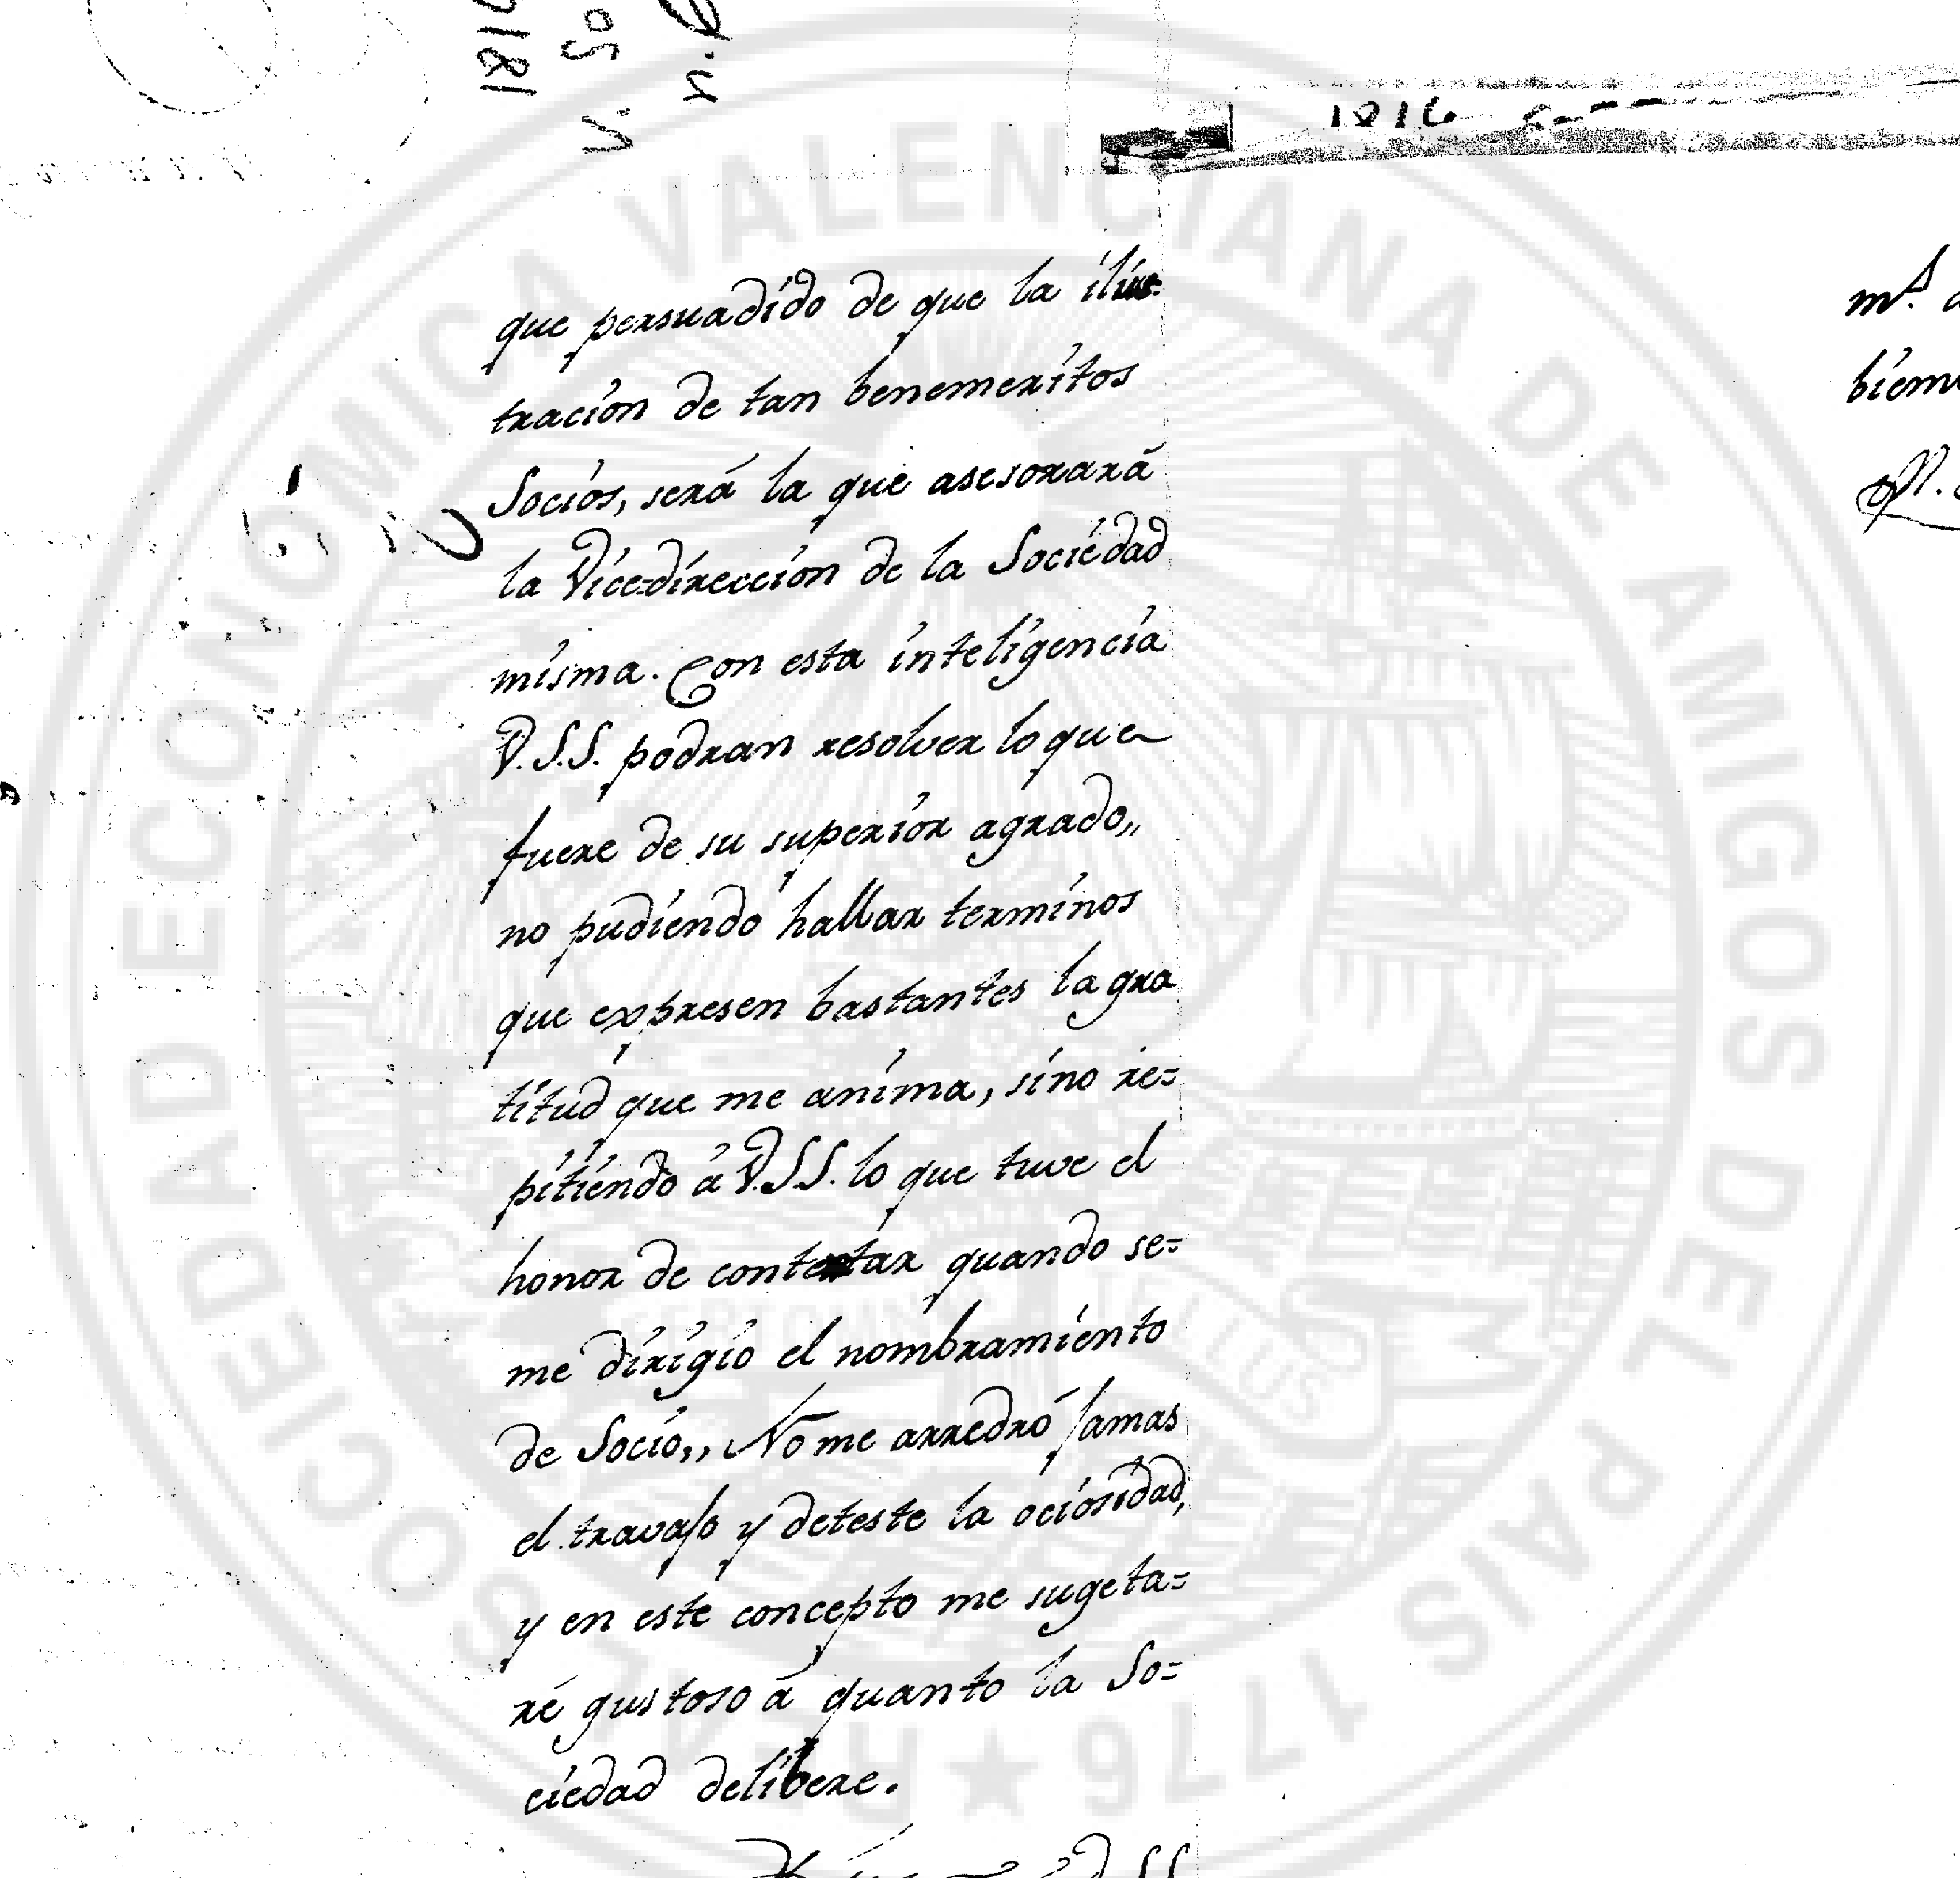 que persuadido de que la ilus-
tracion de tan benemeritos
Socios, será la que asesorará
la Vice=direccion de la Sociedad
misma. Con esta inteligencia
V.S.S. podran resolver lo que
fuere de su superior agrado,,
no pudiendo hallar terminos
que expresen bastantes la gra
titud que me anima, sino re=
pitiendo á V.S.S. lo que tuve el
honor de contestar quando se=
me dirigió el nombramiento
de Socio,, No me arredró jamas
el travajo y deteste la ociosidad,
y en este concepto me sugeta=
ré gustoso á quanto la So=
ciedad delibere.
SOCIEDAD ECONOMICA VALENCIANA DE AMIGOS DEL PAIS 1776